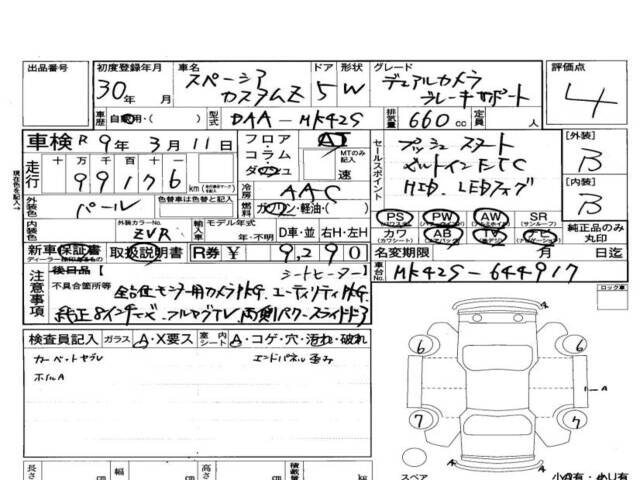 出品番号 初度登録年月 車名 ドア 形状 グレード 評価点
30年 月 スペーシア カスタムZ 5 W デュアルカメラ ブレーキサポート 4
車歴 自家用・( ) 型式 DAA-MK42S 排気量 660cc 定員 人
車検 R 9年 3月 11日 フロア・コラム・ダッシュ AT MTのみ記入 速 セールスポイント プッシュスタート [外装] B
現在色を記入→ 走行 十万千百十 99176 km
ビルトインETC
冷房 AAC HID、LEDフォグ [内装] B
外装色 パール 色替車は色替と記入 燃料 ガソリン・軽油・( )
外装カラーNo. ZVR 輸入車 モデル年式 年・不明 D車・並 右H・左H
PS PW AW SR (サンルーフ) 純正品のみ丸印
カワ (カワシート) AB TV
新車保証書 取扱説明書 R券 ¥ 9,290 名変期限 月 日迄
注意事項 後日品 シートヒーター 車台No. MK42S-644917
不具合箇所等 全方位モニター用カメラPKG、ユーティリティPKG
純正8インチナビ、フルセグTV、両側パワースライドドア
ロック車
検査員記入 ガラス A・X要ス 室内シート A・コゲ・穴・汚れ・破れ
カーペットヤブレ エンドパネル歪み
ホイルA
A
6 6
A
7 7
A
スペア
長さ cm 幅 cm 高さ cm 積載量 kg